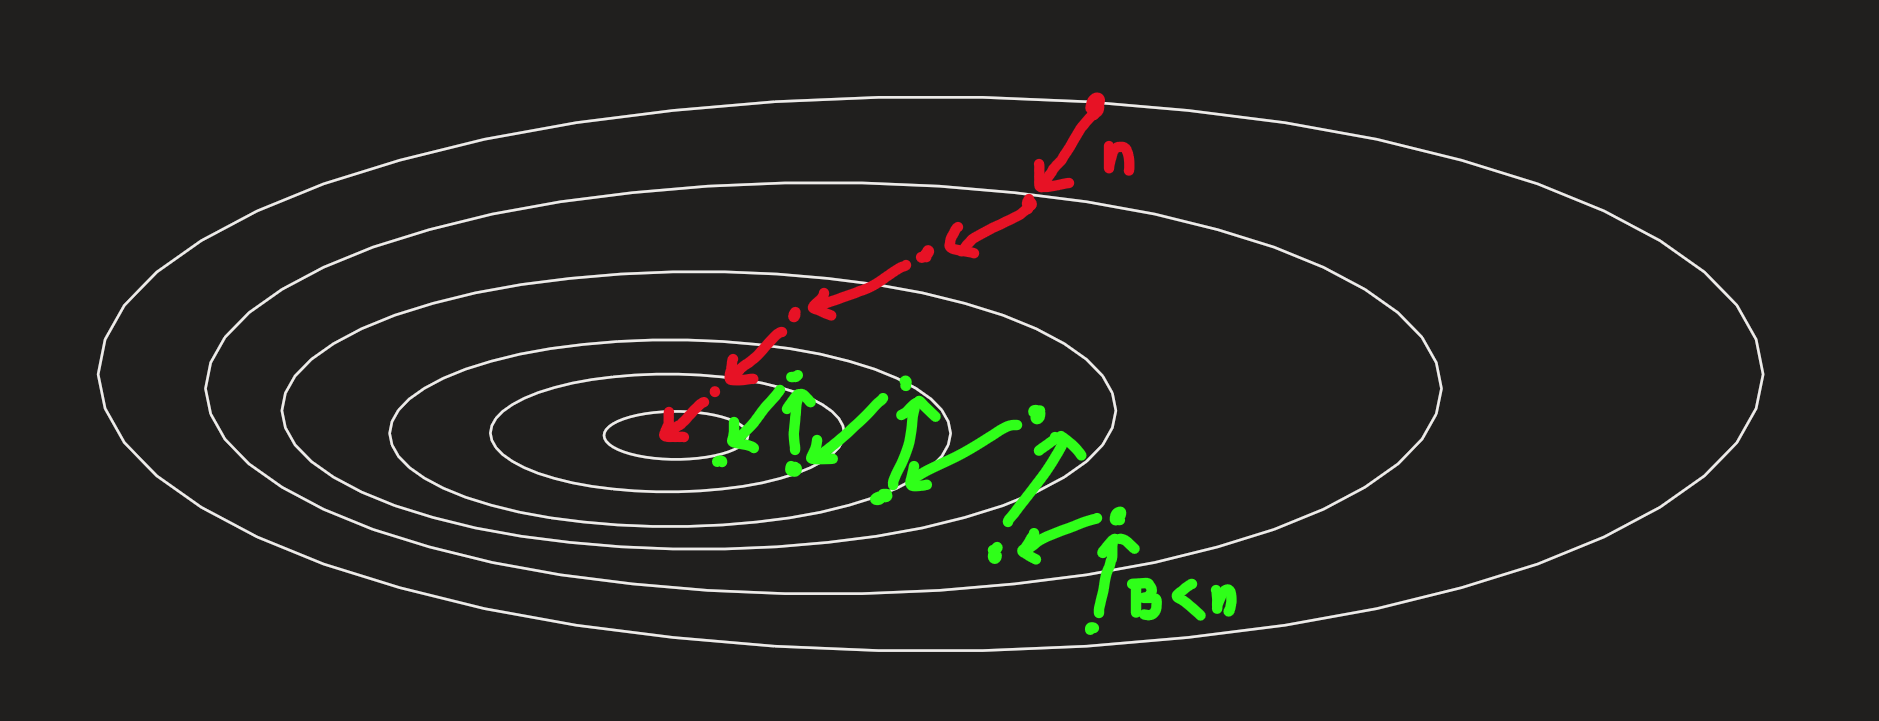 n
B<n